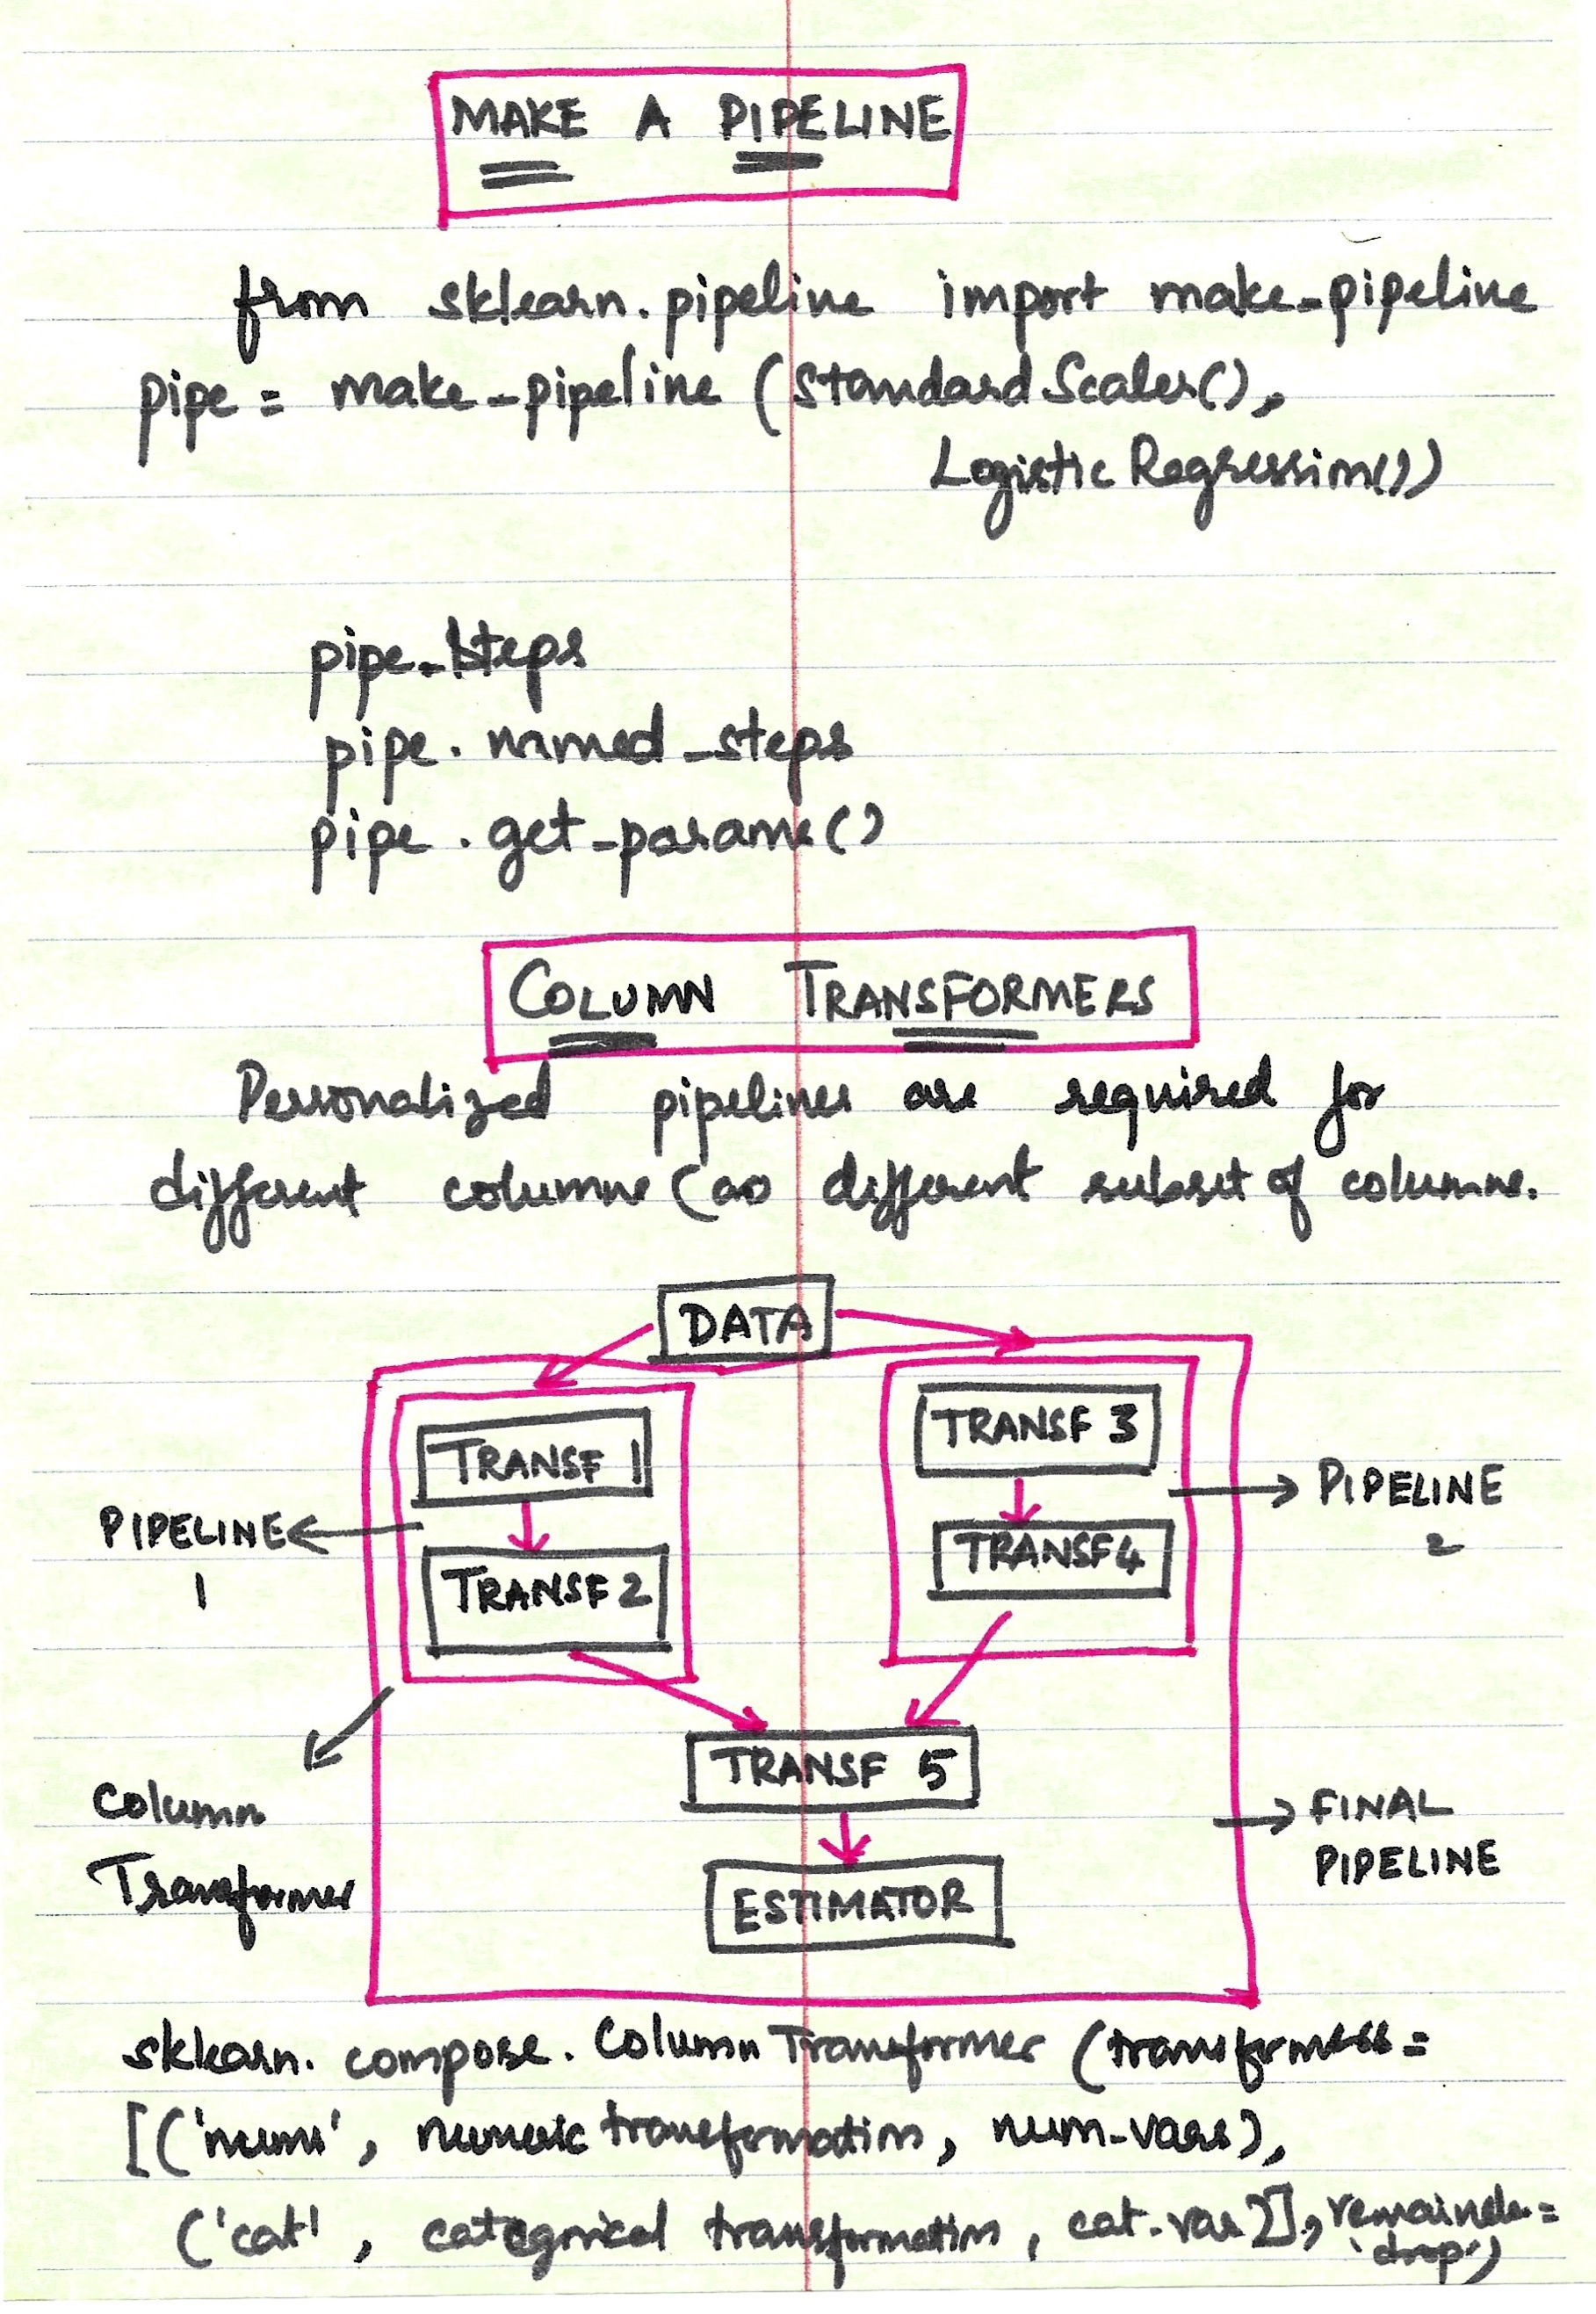 MAKE A PIPELINE
from sklearn.pipeline import make_pipeline
pipe = make_pipeline (StandardScaler(),
LogisticRegression())
pipe.steps
pipe.named_steps
pipe.get_params()
COLUMN TRANSFORMERS
Personalized pipelines are required for
different columns (or different subset of columns.
DATA
TRANSF 1
TRANSF 3
PIPELINE
1
TRANSF 2
TRANSF 4
PIPELINE
2
TRANSF 5
Column
Transformer
FINAL
PIPELINE
ESTIMATOR
sklearn.compose.ColumnTransformer (transformers=
[('nums', numeric transformation, num-vars),
('cat', categorical transformation, cat.var)], remainder=
'drop')